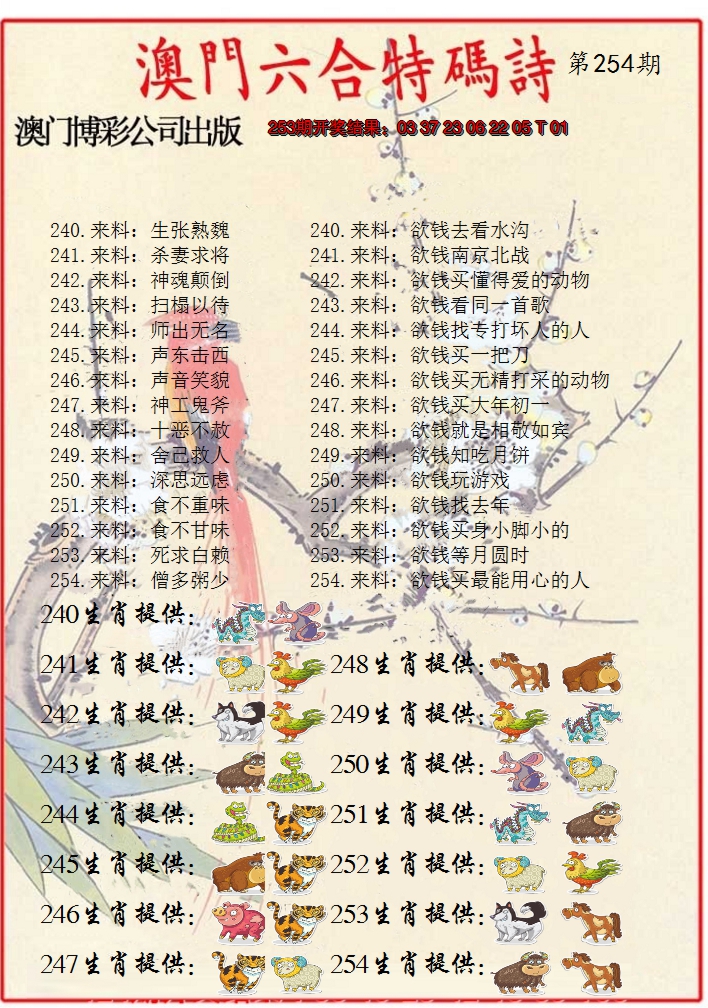 澳門六合特碼詩 第254期
澳门博彩公司出版 253期开奖结果：03 37 23 06 22 05 T 01
240.来料：生张熟魏 240.来料：欲钱去看水沟
241.来料：杀妻求将 241.来料：欲钱南京北战
242.来料：神魂颠倒 242.来料：欲钱买懂得爱的动物
243.来料：扫榻以待 243.来料：欲钱看同一首歌
244.来料：师出无名 244.来料：欲钱找专打坏人的人
245.来料：声东击西 245.来料：欲钱买一把刀
246.来料：声音笑貌 246.来料：欲钱买无精打采的动物
247.来料：神工鬼斧 247.来料：欲钱买大年初一
248.来料：十恶不赦 248.来料：欲钱就是相敬如宾
249.来料：舍己救人 249.来料：欲钱知吃月饼
250.来料：深思远虑 250.来料：欲钱玩游戏
251.来料：食不重味 251.来料：欲钱找去年
252.来料：食不甘味 252.来料：欲钱买身小脚小的
253.来料：死求白赖 253.来料：欲钱等月圆时
254.来料：僧多粥少 254.来料：欲钱买最能用心的人
240生肖提供：
241生肖提供： 248生肖提供：
242生肖提供： 249生肖提供：
243生肖提供： 250生肖提供：
244生肖提供： 251生肖提供：
245生肖提供： 252生肖提供：
246生肖提供： 253生肖提供：
247生肖提供： 254生肖提供：